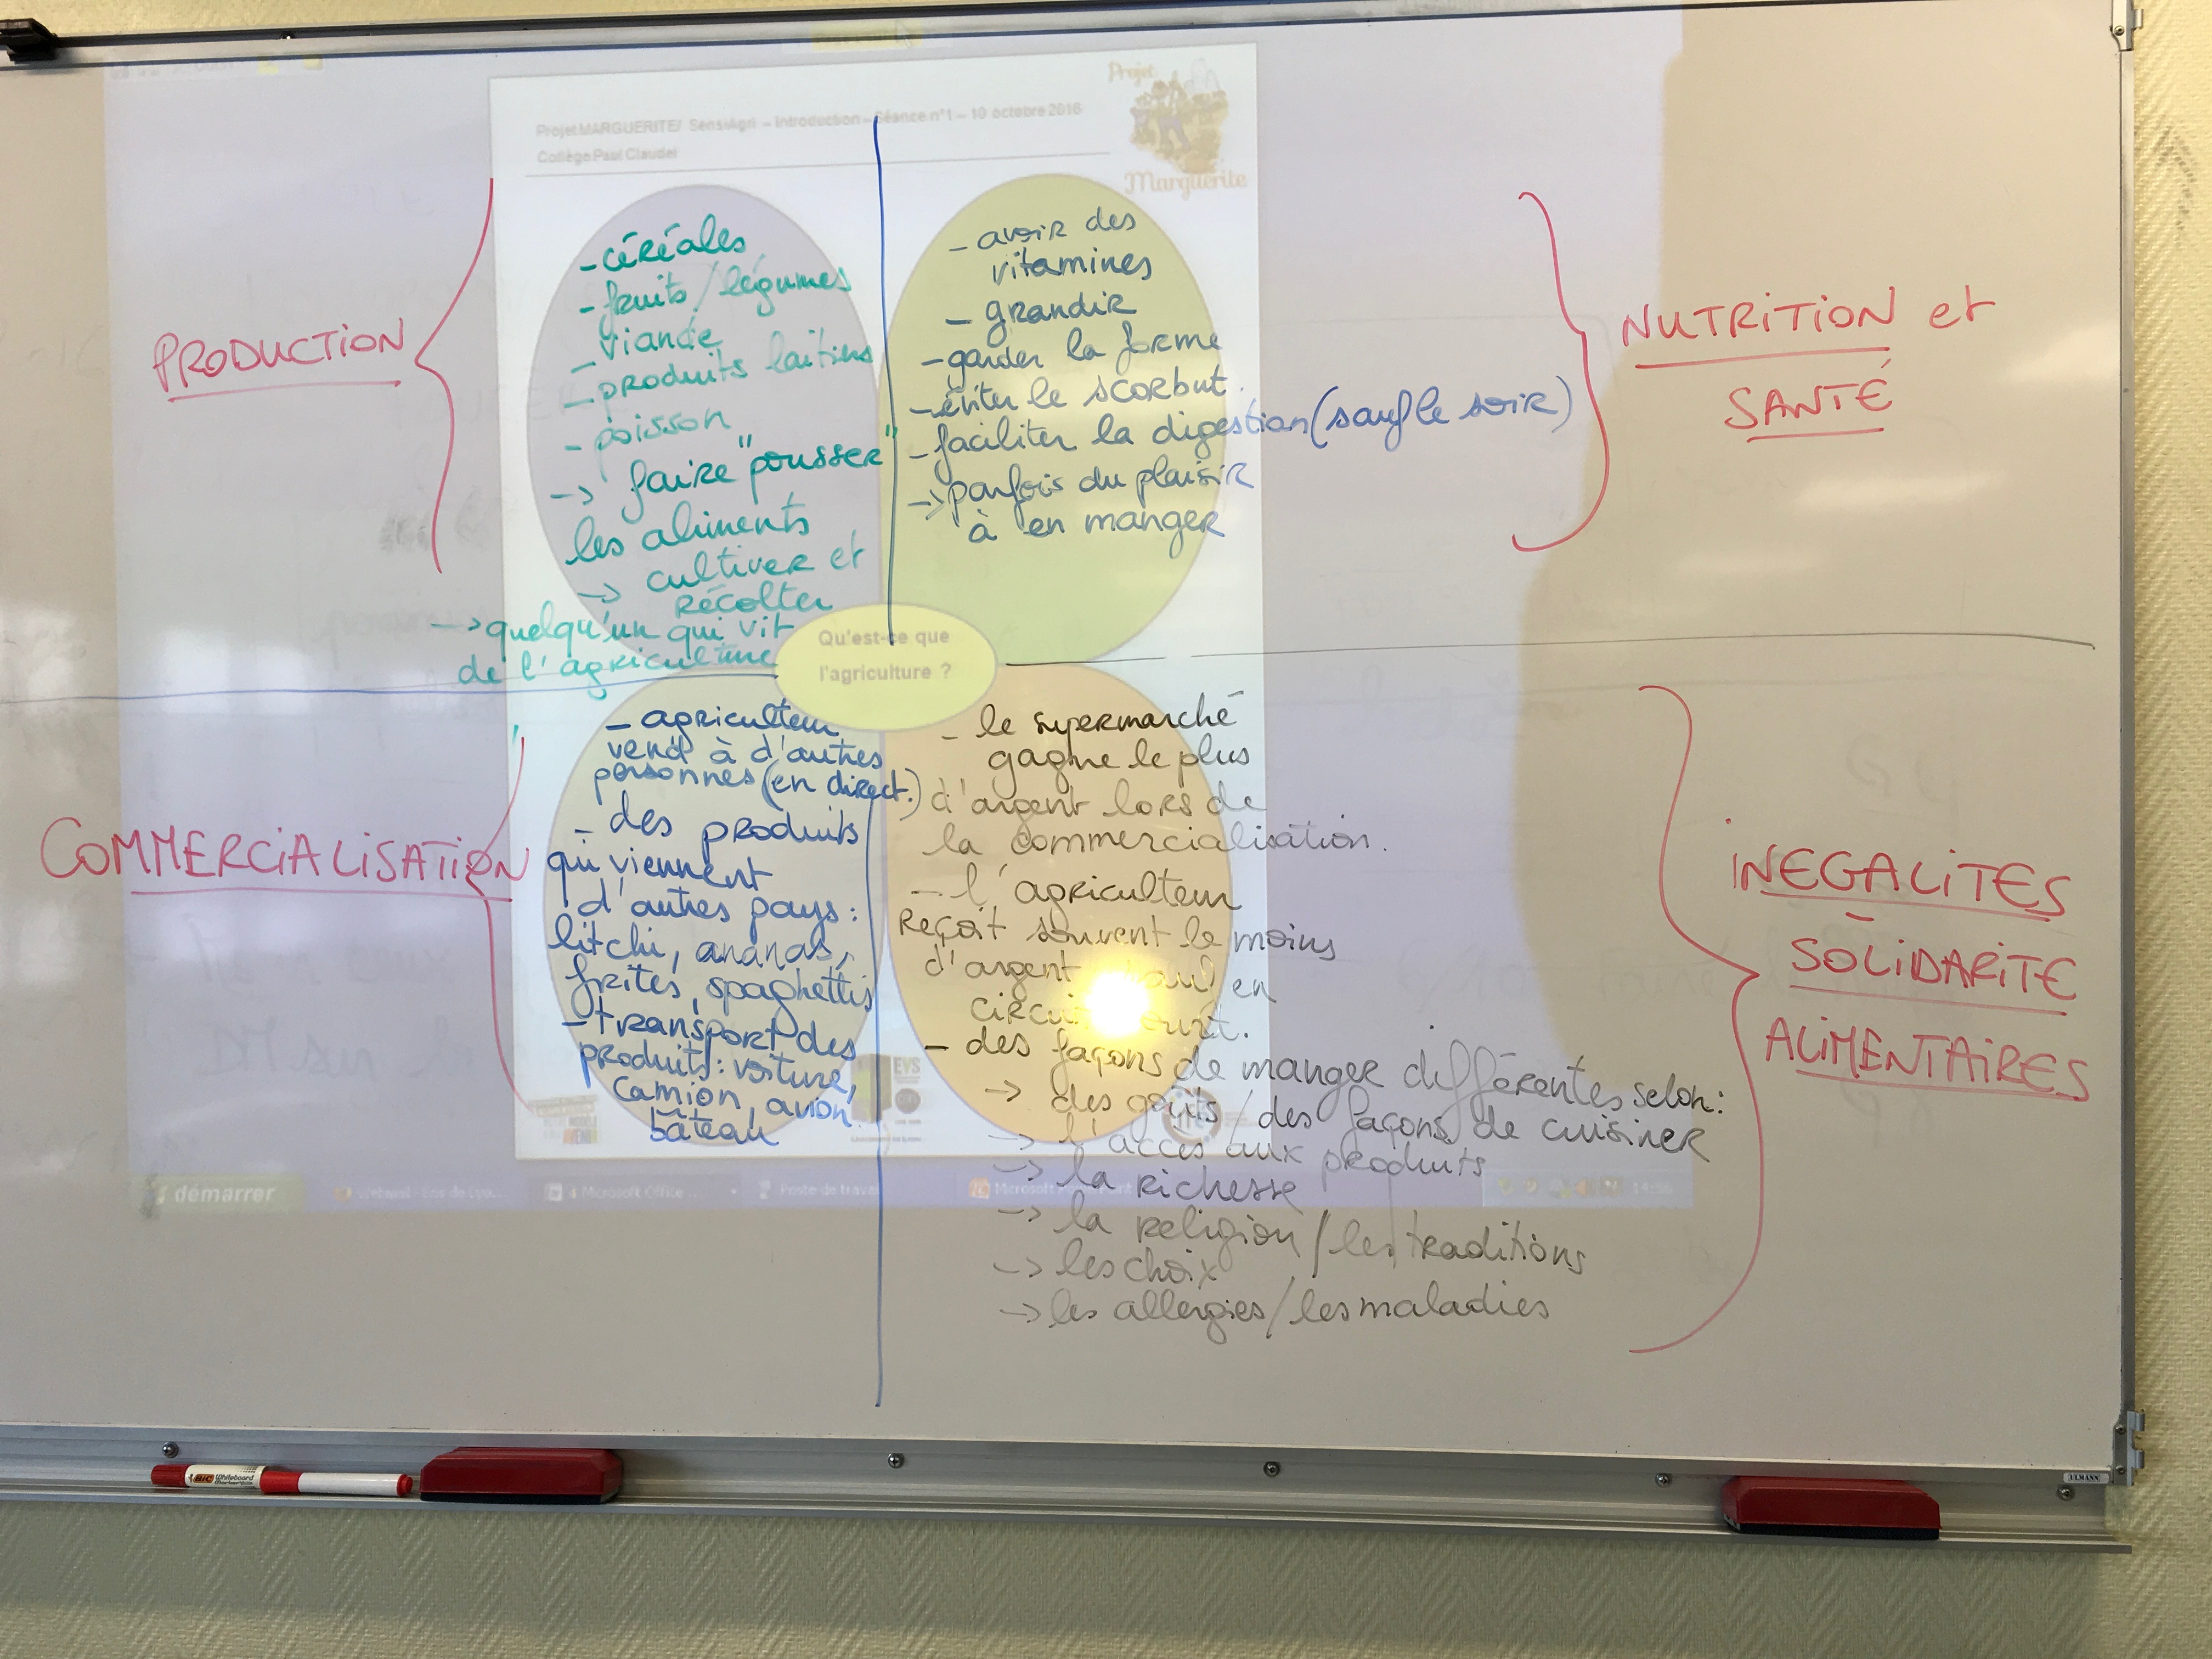 Projet
Marguerite
Projet MARGUERITE/ SensiAgri – Introduction – Séance n°1 – 10 octobre 2016
Collège Paul Claudel
PRODUCTION
- céréales
- fruits / légumes
- viande
- produits laitiers
- poisson
-> faire "pousser"
les aliments
-> cultiver et
récolter
-> quelqu'un qui vit
de l'agriculture
- avoir des
vitamines
- grandir
- garder la forme
- éviter le scorbut.
- faciliter la digestion (sauf le soir)
-> parfois du plaisir
à en manger
NUTRITION et
SANTÉ
Qu'est-ce que
l'agriculture ?
COMMERCIALISATION
- agriculteur
vend à d'autres
personnes (en direct.)
- des produits
qui viennent
d'autres pays :
litchi, ananas,
frites, spaghettis
- transport des
produits : voiture,
camion, avion,
bâteau
- le supermarché
gagne le plus
d'argent lors de
la commercialisation.
- l'agriculteur
reçoit souvent le moins
d'argent en
- des façons de manger différentes selon :
-> des goûts / des façons de cuisiner
-> l'accès aux produits
-> la richesse
-> la religion / les traditions
-> les choix
-> les allergies / les maladies
INEGALITES
SOLIDARITE
ALIMENTAIRES
EVS
démarrer
Microsoft Office ...
Poste de travail
Microsoft
BIC Whiteboard
ULMANN